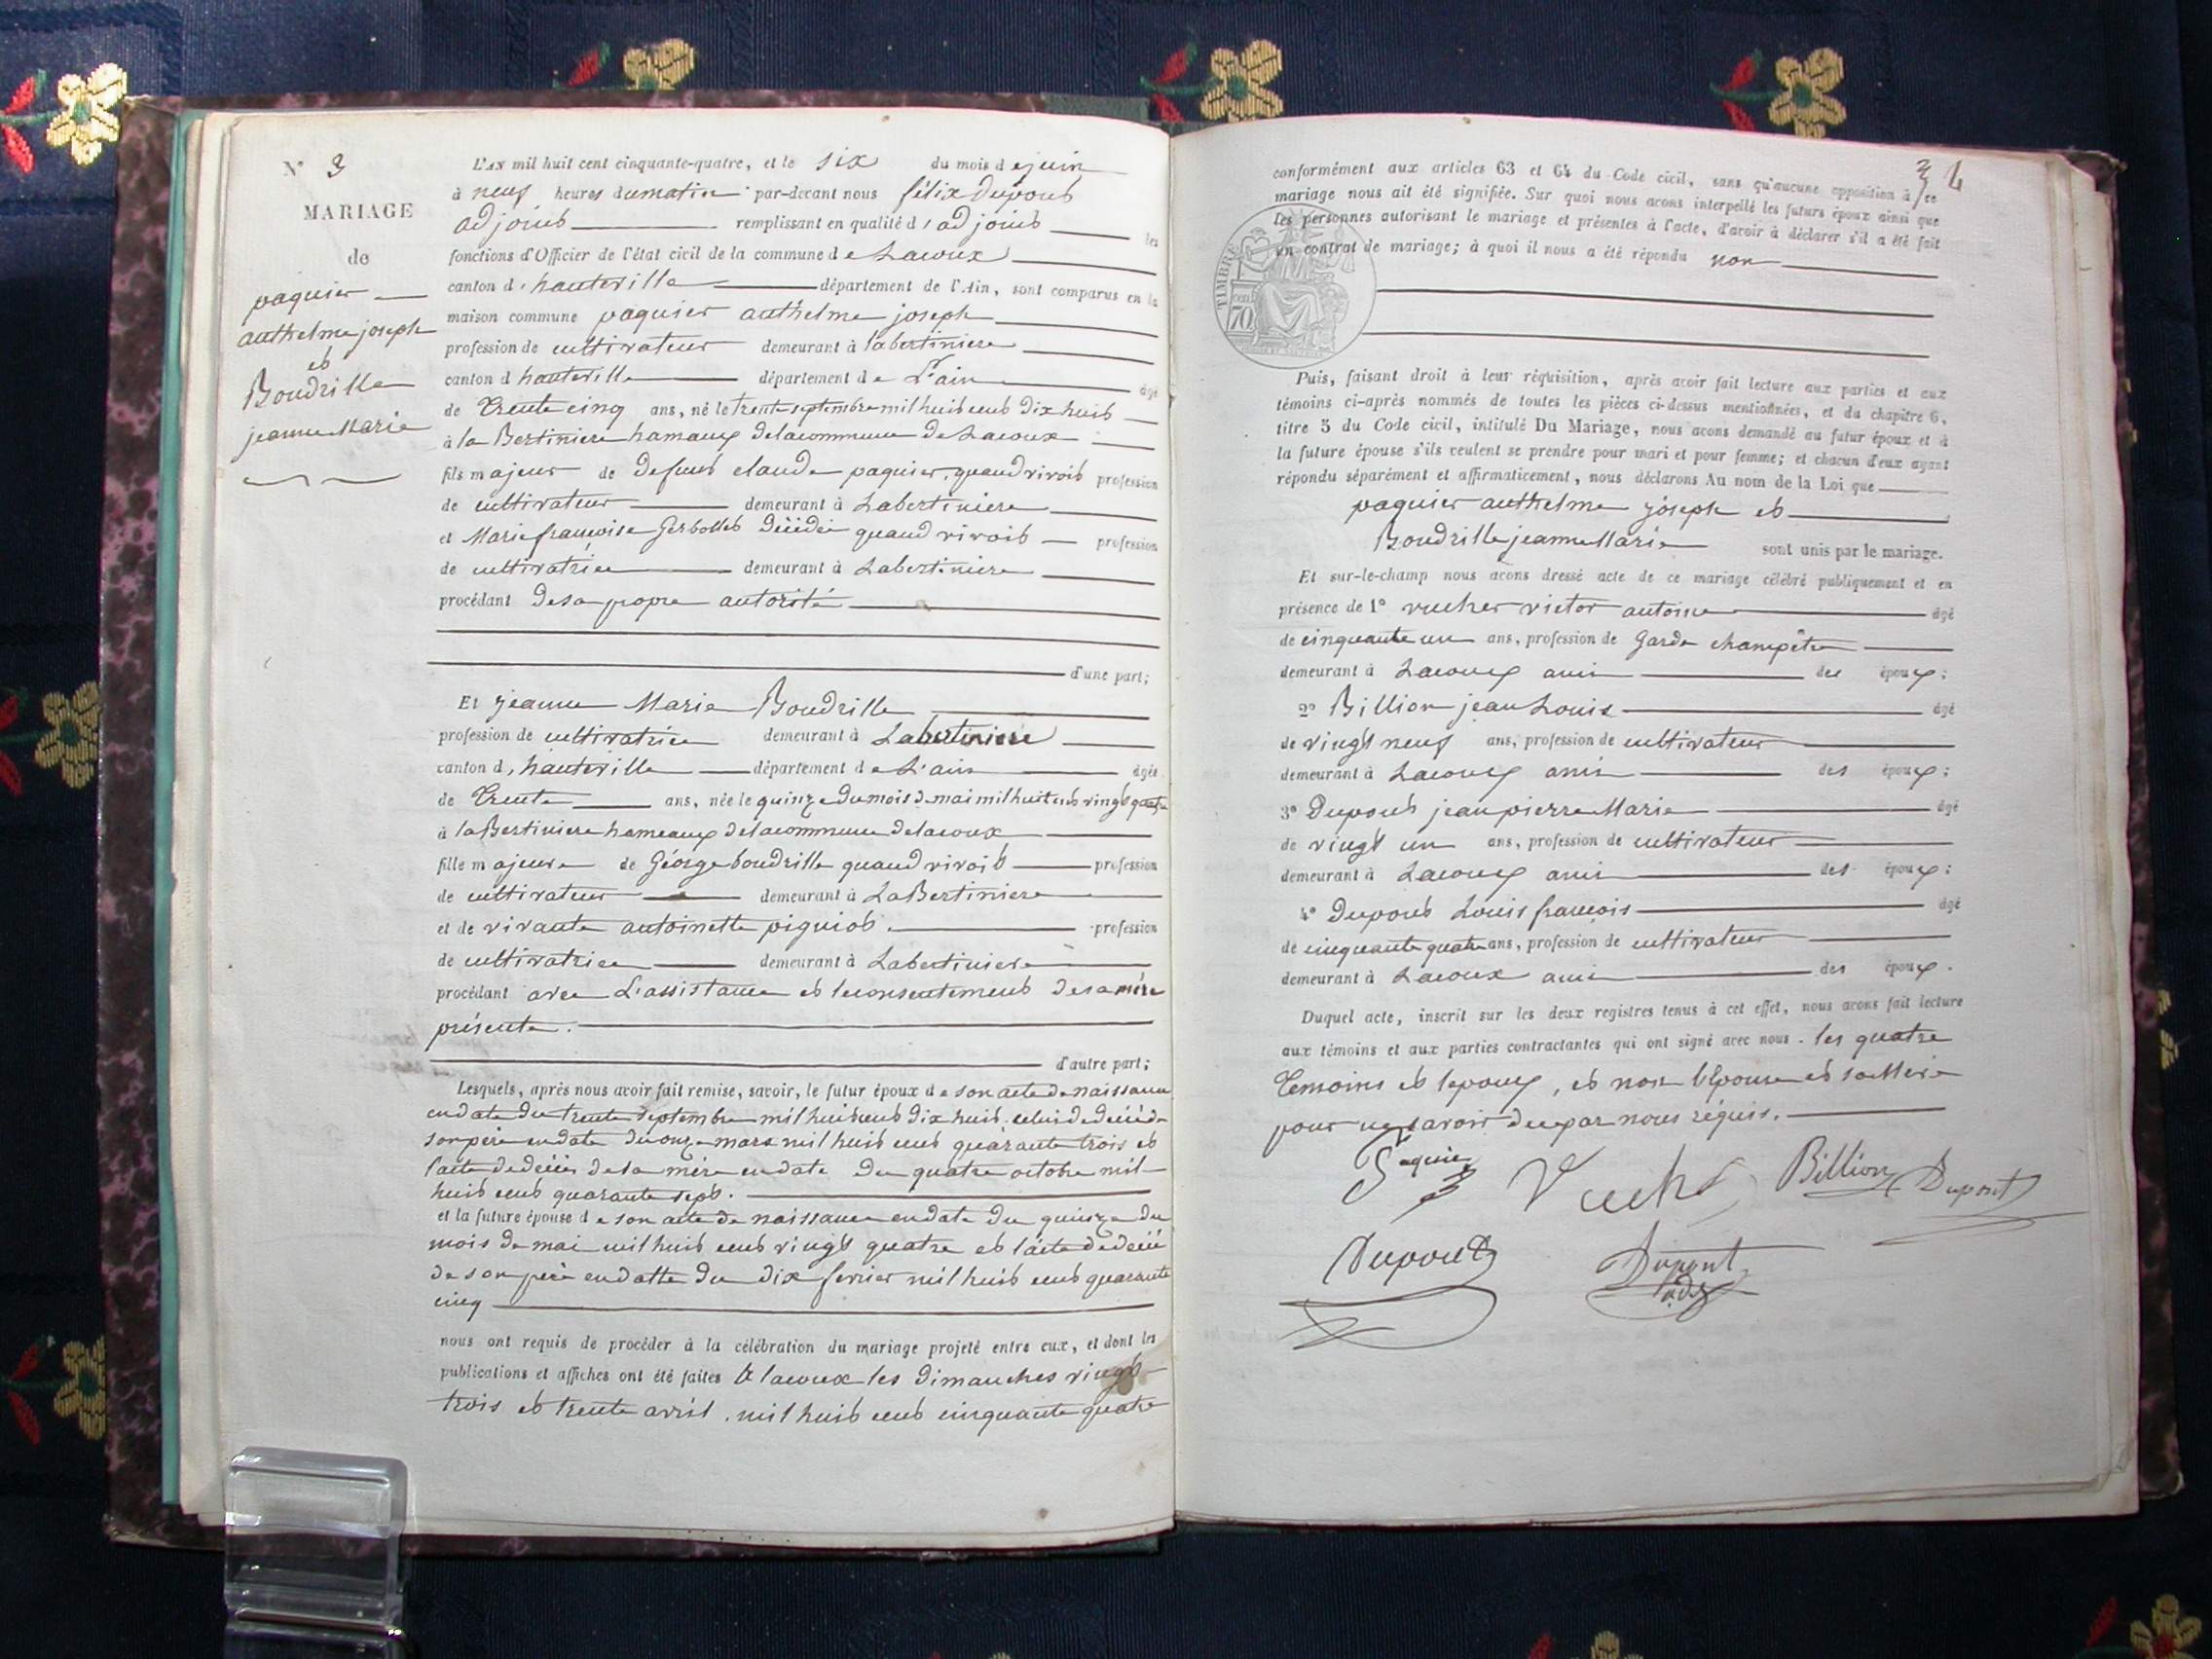 N° 3
MARIAGE
de
paquier
anthelme joseph
et
Boudrille
jeanne Marie
L'AN mil huit cent cinquante-quatre, et le six du mois de juin
à neuf heures du matin par-devant nous félix Dupont
adjoint remplissant en qualité d'adjoint les
fonctions d'Officier de l'état civil de la commune de Lacoux
canton d'hauteville département de l'Ain, sont comparus en la
maison commune paquier anthelme joseph
profession de cultivateur demeurant à labertiniere
canton d hauteville département de L'ain âgé
de trente cinq ans, né le trente septembre mil huit cent dix huit
à la Bertiniere hamaux de la commune de Lacoux
fils majeur de defunt claude paquier, quand vivoit profession
de cultivateur demeurant à Labertiniere
et Marie françoise Gerbollet décédée quand vivoit profession
de cultivatrice demeurant à Labertiniere
procédant de sa propre autorité
d'une part;
Et jeanne Marie Boudrille
profession de cultivatrice demeurant à Labertiniere
canton d, hauteville département de L'ain âgée
de trente ans, née le quinze du mois de mai mil huit cent vingt quatre
à la Bertiniere hameaux de la commune de lacoux
fille majeure de Géorge boudrille quand vivoit profession
de cultivateur demeurant à La Bertiniere
et de vivante antoinette piquiot profession
de cultivatrice demeurant à Labertiniere
procédant avec L'assistance et le consentement de sa mère
présente.
d'autre part;
Lesquels, après nous avoir fait remise, savoir, le futur époux de son acte de naissance
en date du trente septembre mil huit cent dix huit, celui de décéd
son père en date du onze mars mil huit cent quarante trois et
l'acte de décès de sa mère en date du quatre octobre mil
huit cent quarante sept.
et la future épouse de son acte de naissance en date du quinze du
mois de mai mil huit cent vingt quatre et l'acte de décé
de son père en datte du dix fevrier mil huit cent quarante
cinq
nous ont requis de procéder à la célébration du mariage projeté entre eux, et dont les
publications et affiches ont été faites à lacoux les dimanches vingt
trois et trente avril, mil huit cent cinquante quatre
4
conformément aux articles 63 et 64 du Code civil, sans qu'aucune opposition à ce
mariage nous ait été signifiée. Sur quoi nous avons interpellé les futurs époux ainsi que
les personnes autorisant le mariage et présentes à l'acte, d'avoir à déclarer s'il a été fait
un contrat de mariage; à quoi il nous a été répondu non
TIMBRE
70
Puis, faisant droit à leur réquisition, après avoir fait lecture aux parties et aux
témoins ci-après nommés de toutes les pièces ci-dessus mentionnées, et du chapitre 6,
titre 5 du Code civil, intitulé Du Mariage, nous avons demandé au futur époux et à
la future épouse s'ils veulent se prendre pour mari et pour femme; et chacun d'eux ayant
répondu séparément et affirmativement, nous déclarons Au nom de la Loi que
paquier anthelme joseph et
Boudrille jeanne Marie sont unis par le mariage.
Et sur-le-champ nous avons dressé acte de ce mariage célébré publiquement et en
présence de 1° vucher victor antoine âgé
de cinquante un ans, profession de Garde champêtre
demeurant à Lacoux ami des époux;
2° Billion jean Louis âgé
de vingt neuf ans, profession de cultivateur
demeurant à Lacoux ami des époux;
3° Dupont jean pierre Marie âgé
de vingt un ans, profession de cultivateur
demeurant à Lacoux ami des époux;
4° Dupont Louis françois âgé
de cinquante quatre ans, profession de cultivateur
demeurant à Lacoux ami des époux.
Duquel acte, inscrit sur les deux registres tenus à cet effet, nous avons fait lecture
aux témoins et aux parties contractantes qui ont signé avec nous. les quatre
temoins et lepoux, et non l'épouse et sa Mère
pour ne savoir de ce par nous réquis.
Paquier Vuche Billion Dupont
Dupont Dupont
adj